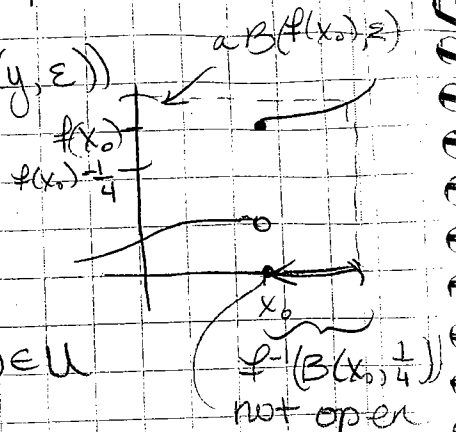 a B(f(x₀), ε)
(y, ε))
f(x₀)
f(x₀)-1/4
x₀
)∈U
f⁻¹(B(x₀, 1/4))
not open